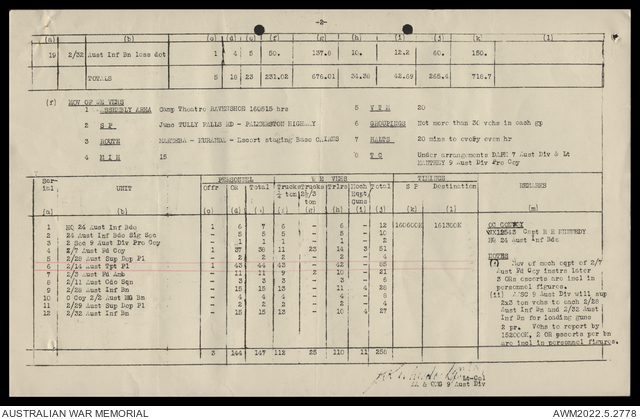 -2-
(a) (b) (c) (d) (e) (f) (g) (h) (i) (j) (k) (l)
19 2/32 Aust Inf Bn less det 1 4 5 50. 137.8 10. 12.2 60. 150.
TOTALS 5 18 23 231.02 676.01 34.38 42.69 265.4 718.7
(f) MOV OF WE VEHS
1 ASSEMBLY AREA Camp Theatre RAVENSHOE 160515 hrs
2 S P Junc TULLY FALLS RD - PALMERSTON HIGHWAY
3 ROUTE MAREEBA - KURANDA - Escort staging Base CAIRNS
4 M I H 15
5 V T M 20
6 GROUPINGS Not more than 30 vehs in each gp
7 HALTS 20 mins to every even hr
8 T C Under arrangements DAPM 7 Aust Div & Lt
9 Aust Div Pro Coy
Serial UNIT PERSONNEL W E VEHS TIMINGS REMARKS
Offr OR Total Trucks Trucks Trlrs Mech Eqpt. Guns Total S P Destination
(a) (b) (c) (d) (e) (f) (g) (h) (i) (j) (k) (l) (m)
1 HQ 24 Aust Inf Bde 1 6 7 6 - 6 - 12 160600K 161300K
2 24 Aust Inf Bde Sig Sec - 5 5 5 - 5 - 10
3 2 Sec 9 Aust Div Pro Coy - 1 1 1 - 1 - 2
4 2/7 Aust Fd Coy 1 37 38 11 23 14 3 51
5 2/28 Aust Sup Dep Pl - 2 2 2 - 2 - 4
6 2/14 Aust Tpt Pl 1 43 44 43 - 42 - 85
7 2/3 Aust Fd Amb - 11 11 9 2 10 - 21
8 2/11 Aust Cdo Sqn - 3 3 3 - 3 - 6
9 2/28 Aust Inf Bn - 15 15 13 - 11 4 28
10 C Coy 2/2 Aust MG Bn - 4 4 4 - 4 - 8
11 2/29 Aust Sup Dep Pl - 2 2 2 - 2 - 4
12 2/32 Aust Inf Bn - 15 15 13 - 10 4 27
3 144 147 112 25 110 11 258
OC CONVOY
Capt R E
HQ 24 Aust Inf Bde
NOTES
(*) Mov of mech eqpt of 2/7
Aust Fd Coy instrs later
3 ORs escorts are incl in
personnel figures.
AASC 9 Aust Div will sup
2x3 ton vehs to each 2/28
Aust Inf Bn and 2/32 Aust
Inf Bn for loading guns
2 pr. Vehs to report by
152000K, 2 OR escorts per bn
are incl in personnel figures.
Lt-Col
AA & QMG 9 Aust Div
AUSTRALIAN WAR MEMORIAL
AWM2022.5.2778